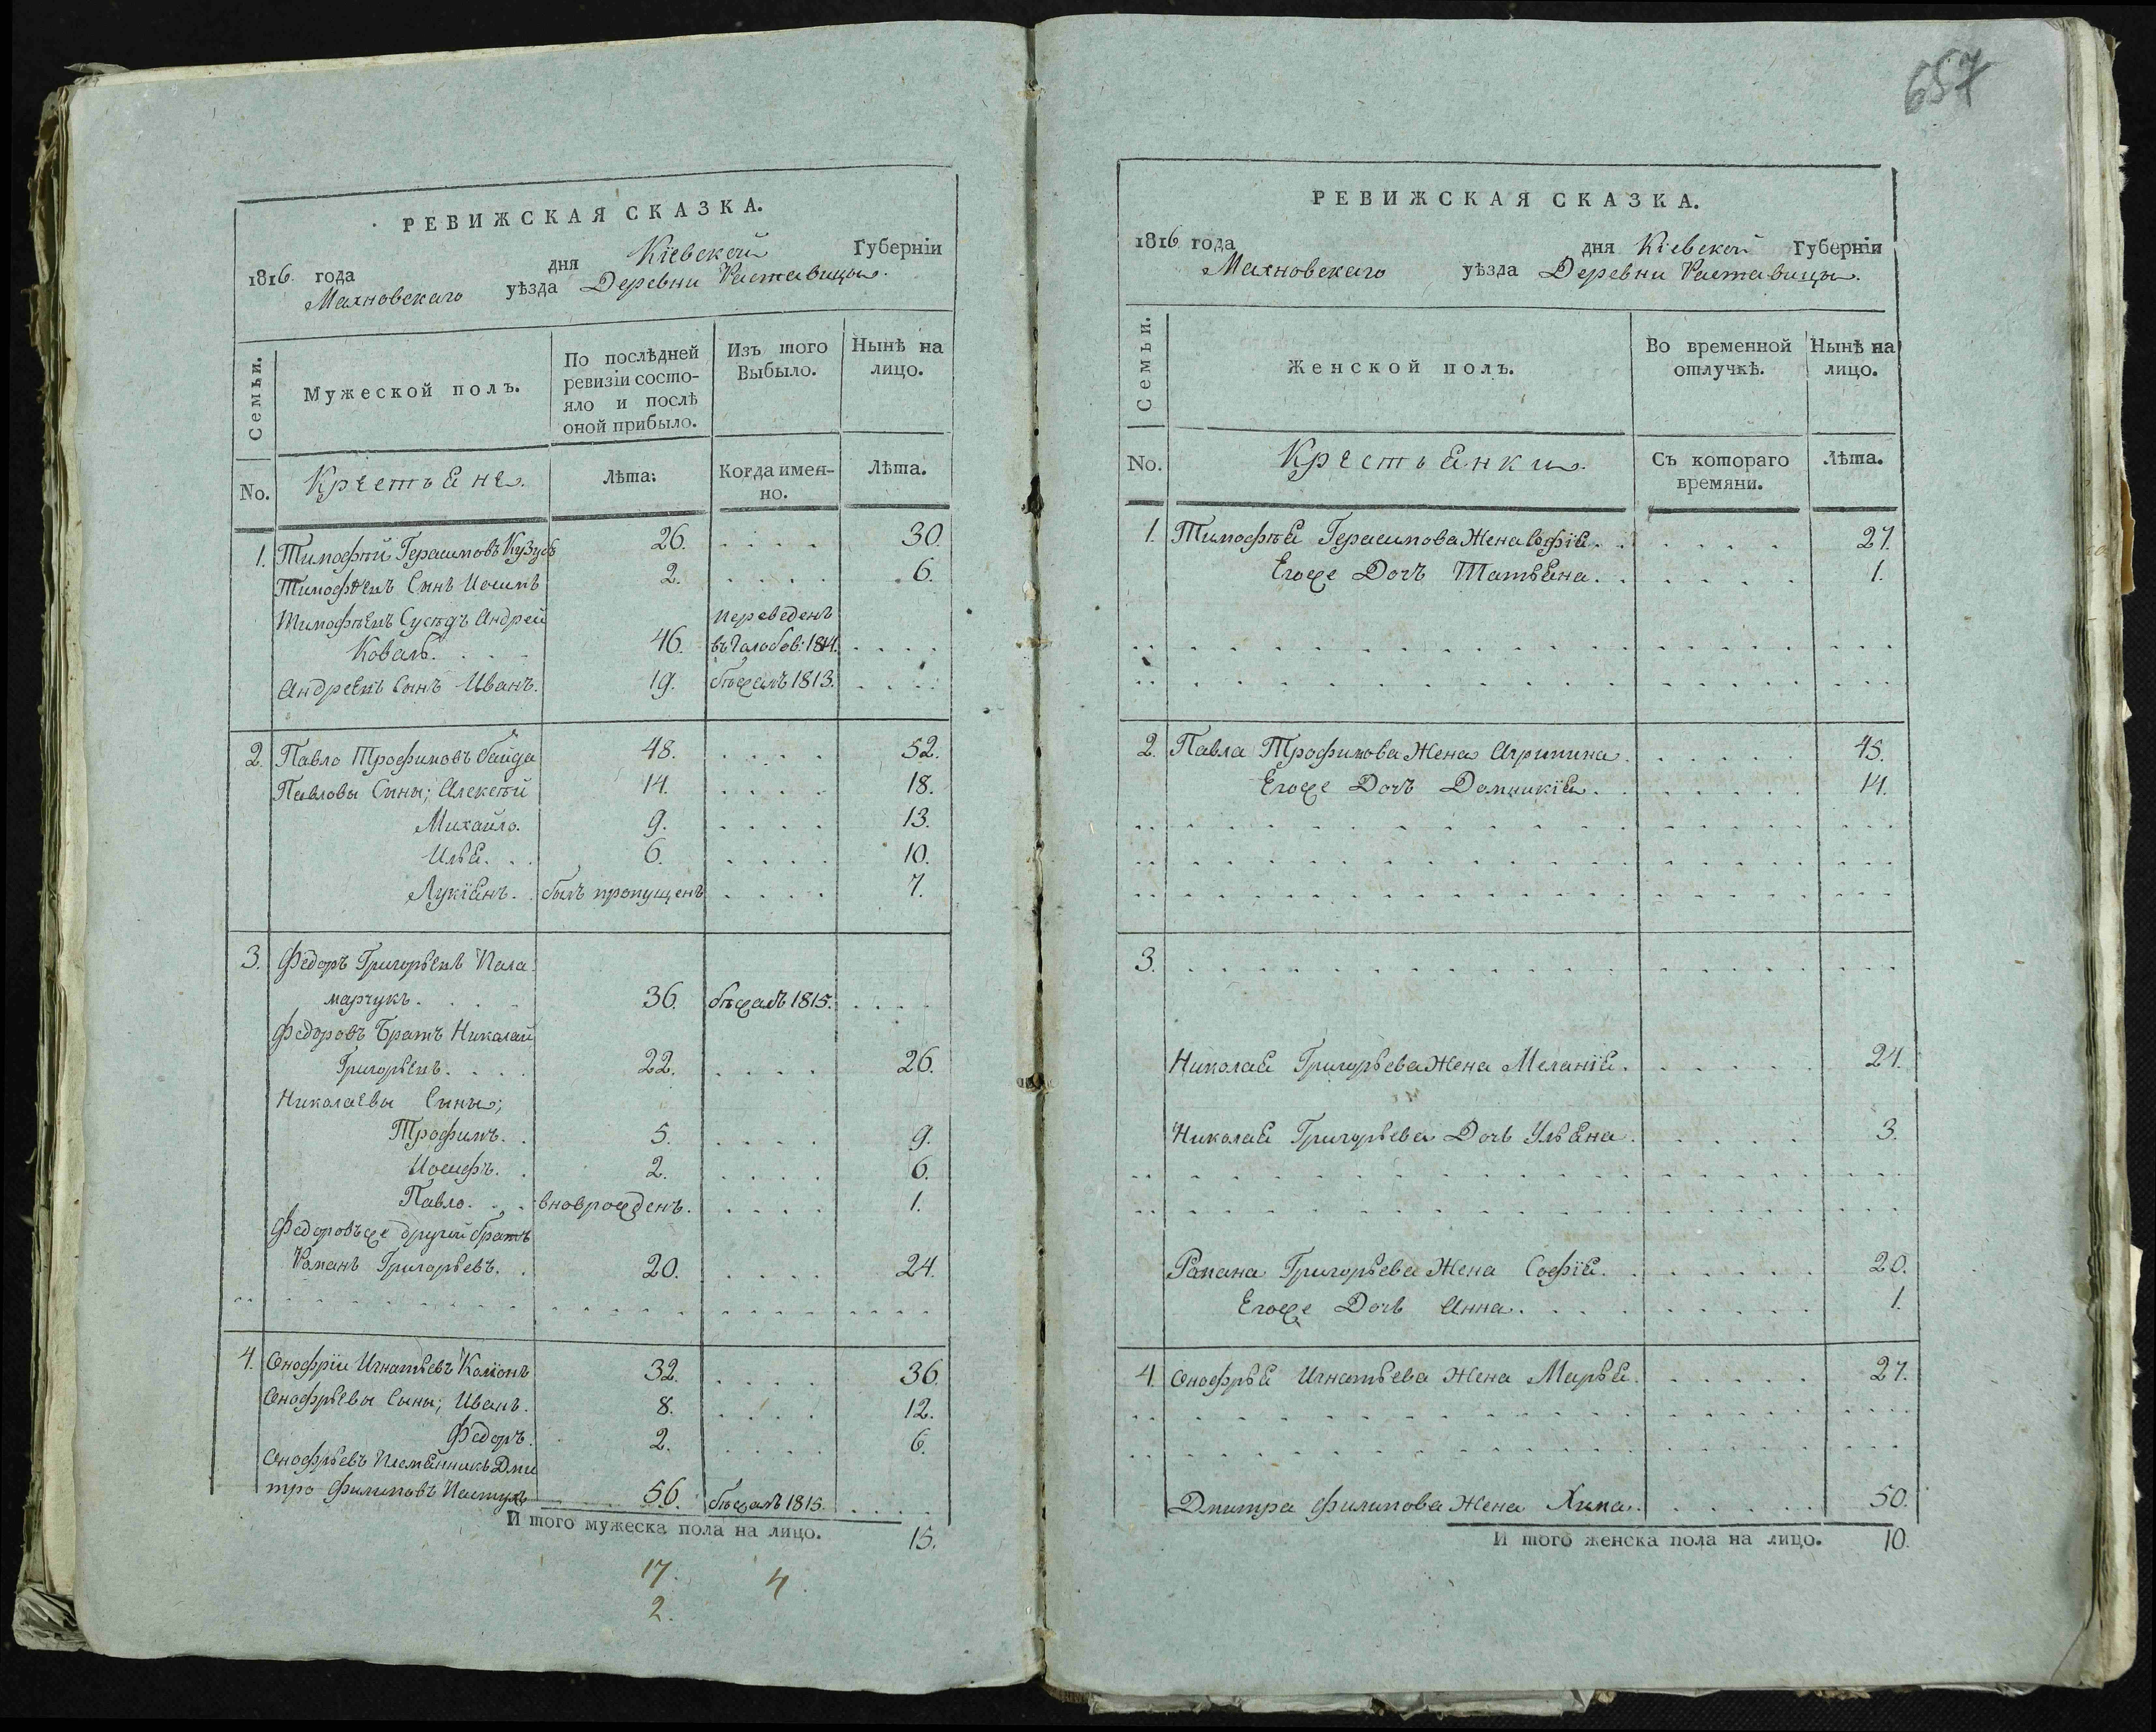 657
РЕВИЖСКАЯ СКАЗКА.
1816 года дня Кіевской Губерніи
Махновскаго уѣзда Деревни Раставицы.
Семьи. Мужеской полъ. По послѣдней ревизіи состояло и послѣ оной прибыло. Изъ того Выбыло. Нынѣ на лицо.
No. Крестьяне. Лѣта: Когда именно. Лѣта.
1. Тимофѣй Герасимовъ 26. . . . . 30.
Тимофѣевъ Сынъ 2. . . . . 6.
Тимофѣевъ Сусѣдъ Андрей переведенъ
Коваль. . . . 46. 1814. . . . .
Андреевъ Сынъ Иванъ. 19. бѣжалъ 1813. . . . .
2. Павло Трофимовъ Байда 48. . . . . 52.
Павловы Сыны; Алексѣй 14. . . . . 18.
Михайло. 9. . . . . 13.
Илья. . . 6. . . . . 10.
Лукіянъ. . былъ пропущенъ . . . . 7.
3. Федоръ Григорьевъ Пала
марчукъ. . . . 36. бѣжалъ 1815. . . . .
Федоровъ Братъ Николай
Григорьевъ. . . . 22. . . . . 26.
Николаевы Сыны;
Трофимъ. . 5. . . . . 9.
Иосифъ. . 2. . . . . 6.
Павло. . . вноврожденъ. . . . . 1.
Федоровъ же другий братъ
Романъ Григорьевъ. . 20. . . . . 24.
4. Онофрій Игнатьевъ 32. . . . . 36.
Онофрьевы Сыны; Иванъ. 8. . . . . 12.
Федоръ. 2. . . . . 6.
Онофрьевъ Племянникъ Дми
тро Филиповъ Пастухъ 56. бѣжалъ 1815. . . . .
И того мужеска пола на лицо. 15.
17. 4.
2.
РЕВИЖСКАЯ СКАЗКА.
1816 года дня Кіевской Губерніи
Махновскаго уѣзда Деревни Раставицы.
Семьи. Женской полъ. Во временной отлучкѣ. Нынѣ на лицо.
No. Крестьянки. Съ котораго времяни. Лѣта.
1. Тимофѣя Герасимова Жена Софія. . . . . . 27.
Егоже Дочь Татьяна. . . . . . 1.
2. Павла Трофимова Жена Агрипина. . . . . . 45.
Егоже Дочь Домникія. . . . . . 14.
3.
Николая Григорьева Жена Меланія. . . . . . 24.
Николая Григорьева Дочь Ульяна. . . . . . 3.
Романа Григорьева Жена Софія. . . . . . 20.
Егоже Дочь Анна. . . . . . 1.
4. Онофрья Игнатьева Жена Марья. . . . . . 27.
Дмитра Филипова Жена Хима. . . . . . 50.
И того женска пола на лицо. 10.